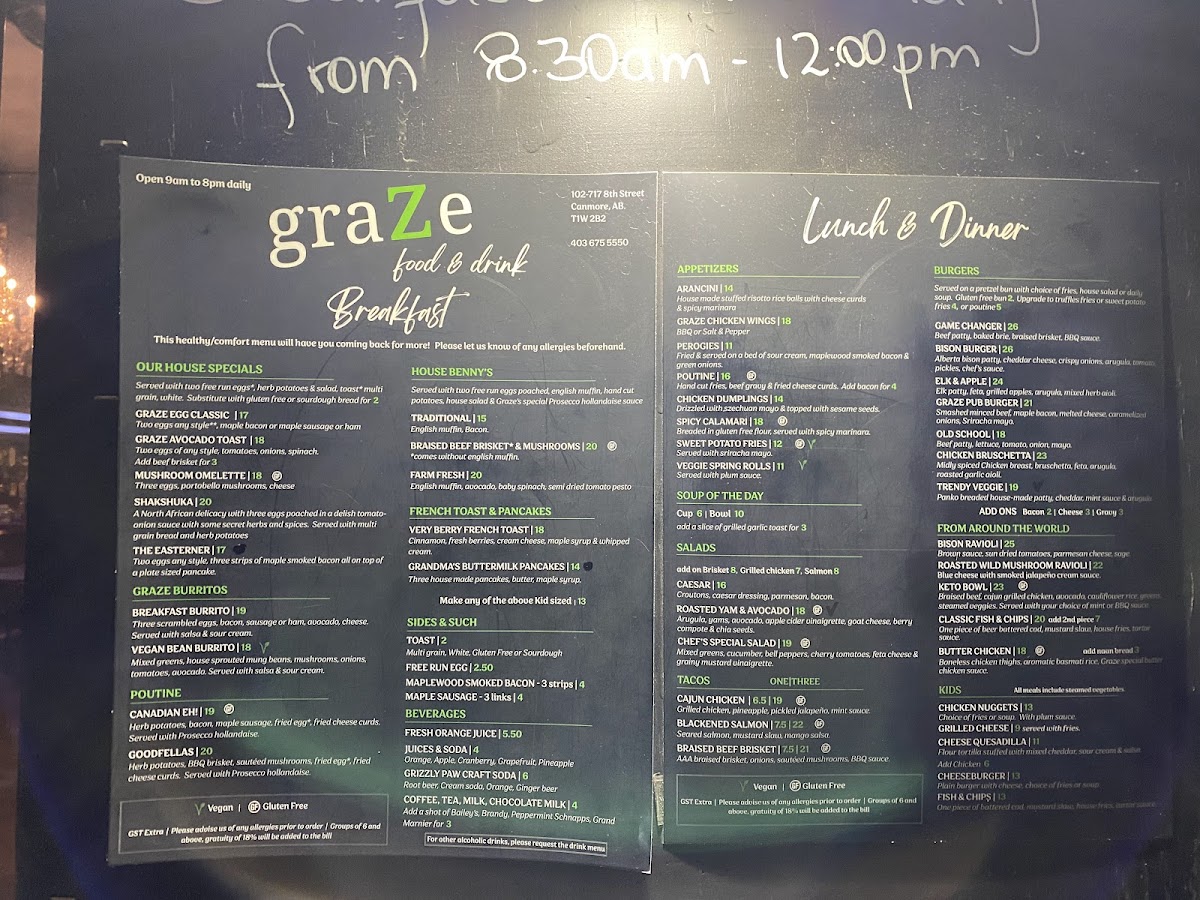 from 8.30am - 12:00pm
Open 9am to 8pm daily
graze
food & drink
102-717 8th Street
Canmore, AB.
T1W 2B2
403 675 5550
Breakfast
This healthy/comfort menu will have you coming back for more! Please let us know of any allergies beforehand.
OUR HOUSE SPECIALS
Served with two free run eggs*, herb potatoes & salad, toast* multi
grain, white. Substitute with gluten free or sourdough bread for 2
GRAZE EGG CLASSIC | 17
Two eggs any style**, maple bacon or maple sausage or ham
GRAZE AVOCADO TOAST | 18
Two eggs of any style, tomatoes, onions, spinach.
Add beef brisket for 3
MUSHROOM OMELETTE | 18 GF
Three eggs, portobello mushrooms, cheese
SHAKSHUKA | 20
A North African delicacy with three eggs poached in a delish tomato-
onion sauce with some secret herbs and spices. Served with multi
grain bread and herb potatoes
THE EASTERNER | 17
Two eggs any style, three strips of maple smoked bacon all on top of
a plate sized pancake.
GRAZE BURRITOS
BREAKFAST BURRITO | 19
Three scrambled eggs, bacon, sausage or ham, avocado, cheese.
Served with salsa & sour cream.
VEGAN BEAN BURRITO | 18
Mixed greens, house sprouted mung beans, mushrooms, onions,
tomatoes, avocado. Served with salsa & sour cream.
POUTINE
CANADIAN EH! | 19 GF
Herb potatoes, bacon, maple sausage, fried egg*, fried cheese curds.
Served with Prosecco hollandaise.
GOODFELLAS | 20
Herb potatoes, BBQ brisket, sautéed mushrooms, fried egg*, fried
cheese curds. Served with Prosecco hollandaise.
Vegan | GF Gluten Free
GST Extra | Please advise us of any allergies prior to order | Groups of 6 and
above, gratuity of 18% will be added to the bill
HOUSE BENNY'S
Served with two free run eggs poached, english muffin, hand cut
potatoes, house salad & Graze's special Prosecco hollandaise sauce
TRADITIONAL | 15
English muffin, Bacon.
BRAISED BEEF BRISKET* & MUSHROOMS | 20 GF
*comes without english muffin.
FARM FRESH | 20
English muffin, avocado, baby spinach, semi dried tomato pesto
FRENCH TOAST & PANCAKES
VERY BERRY FRENCH TOAST | 18
Cinnamon, fresh berries, cream cheese, maple syrup & whipped
cream.
GRANDMA'S BUTTERMILK PANCAKES | 14
Three house made pancakes, butter, maple syrup.
Make any of the above Kid sized | 13
SIDES & SUCH
TOAST | 2
Multi grain, White, Gluten Free or Sourdough
FREE RUN EGG | 2.50
MAPLEWOOD SMOKED BACON - 3 strips | 4
MAPLE SAUSAGE - 3 links | 4
BEVERAGES
FRESH ORANGE JUICE | 5.50
JUICES & SODA | 4
Orange, Apple, Cranberry, Grapefruit, Pineapple
GRIZZLY PAW CRAFT SODA | 6
Root beer, Cream soda, Orange, Ginger beer
COFFEE, TEA, MILK, CHOCOLATE MILK | 4
Add a shot of Bailey's, Brandy, Peppermint Schnapps, Grand
Marnier for 3
For other alcoholic drinks, please request the drink menu
Lunch & Dinner
APPETIZERS
ARANCINI | 14
House made stuffed risotto rice balls with cheese curds
& spicy marinara
GRAZE CHICKEN WINGS | 18
BBQ or Salt & Pepper
PEROGIES | 11
Fried & served on a bed of sour cream, maplewood smoked bacon &
green onions.
POUTINE | 16 GF
Hand cut fries, beef gravy & fried cheese curds. Add bacon for 4
CHICKEN DUMPLINGS | 14
Drizzled with szechuan mayo & topped with sesame seeds.
SPICY CALAMARI | 18 GF
Breaded in gluten free flour, served with spicy marinara.
SWEET POTATO FRIES | 12 GF
Served with sriracha mayo.
VEGGIE SPRING ROLLS | 11
Served with plum sauce.
SOUP OF THE DAY
Cup 6 | Bowl 10
add a slice of grilled garlic toast for 3
SALADS
add on Brisket 8, Grilled chicken 7, Salmon 8
CAESAR | 16
Croutons, caesar dressing, parmesan, bacon.
ROASTED YAM & AVOCADO | 18 GF
Arugula, yams, avocado, apple cider vinaigrette, goat cheese, berry
compote & chia seeds.
CHEF'S SPECIAL SALAD | 19 GF
Mixed greens, cucumber, bell peppers, cherry tomatoes, feta cheese &
grainy mustard vinaigrette.
TACOS ONE|THREE
CAJUN CHICKEN | 6.5 | 19 GF
Grilled chicken, pineapple, pickled jalapeño, mint sauce.
BLACKENED SALMON | 7.5 | 22 GF
Seared salmon, mustard slaw, mango salsa.
BRAISED BEEF BRISKET | 7.5 | 21 GF
AAA braised brisket, onions, sautéed mushrooms, BBQ sauce.
Vegan | GF Gluten Free
GST Extra | Please advise us of any allergies prior to order | Groups of 6 and
above, gratuity of 18% will be added to the bill
BURGERS
Served on a pretzel bun with choice of fries, house salad or daily
soup. Gluten free bun 2, Upgrade to truffles fries or sweet potato
fries 4, or poutine 5
GAME CHANGER | 26
Beef patty, baked brie, braised brisket, BBQ sauce.
BISON BURGER | 26
Alberta bison patty, cheddar cheese, crispy onions, arugula, tomato,
pickles, chef's sauce.
ELK & APPLE | 24
Elk patty, feta, grilled apples, arugula, mixed herb aioli.
GRAZE PUB BURGER | 21
Smashed minced beef, maple bacon, melted cheese, caramelized
onions, Sriracha mayo.
OLD SCHOOL | 18
Beef patty, lettuce, tomato, onion, mayo.
CHICKEN BRUSCHETTA | 23
Midly spiced Chicken breast, bruschetta, feta, arugula,
roasted garlic aioli.
TRENDY VEGGIE | 19
Panko breaded house-made patty, cheddar, mint sauce & arugula
ADD ONS Bacon 2 | Cheese 3 | Gravy 3
FROM AROUND THE WORLD
BISON RAVIOLI | 25
Brown sauce, sun dried tomatoes, parmesan cheese, sage
ROASTED WILD MUSHROOM RAVIOLI | 22
Blue cheese with smoked jalapeño cream sauce.
KETO BOWL | 23 GF
Braised beef, cajun grilled chicken, avocado, cauliflower rice, greens,
steamed veggies. Served with your choice of mint or BBQ sauce.
CLASSIC FISH & CHIPS | 20 add 2nd piece 7
One piece of beer battered cod, mustard slaw, house fries, tartar
sauce.
BUTTER CHICKEN | 18 GF add naan bread 3
Boneless chicken thighs, aromatic basmati rice, Graze special butter
chicken sauce.
KIDS All meals include steamed vegetables
CHICKEN NUGGETS | 13
Choice of fries or soup. With plum sauce.
GRILLED CHEESE | 9 served with fries.
CHEESE QUESADILLA | 11
Flour tortilla stuffed with mixed cheddar, sour cream & salsa
Add Chicken 6
CHEESEBURGER | 13
Plain burger with cheese, choice of fries or soup.
FISH & CHIPS | 13
One piece of battered cod, mustard slaw, house fries, tartar sauce